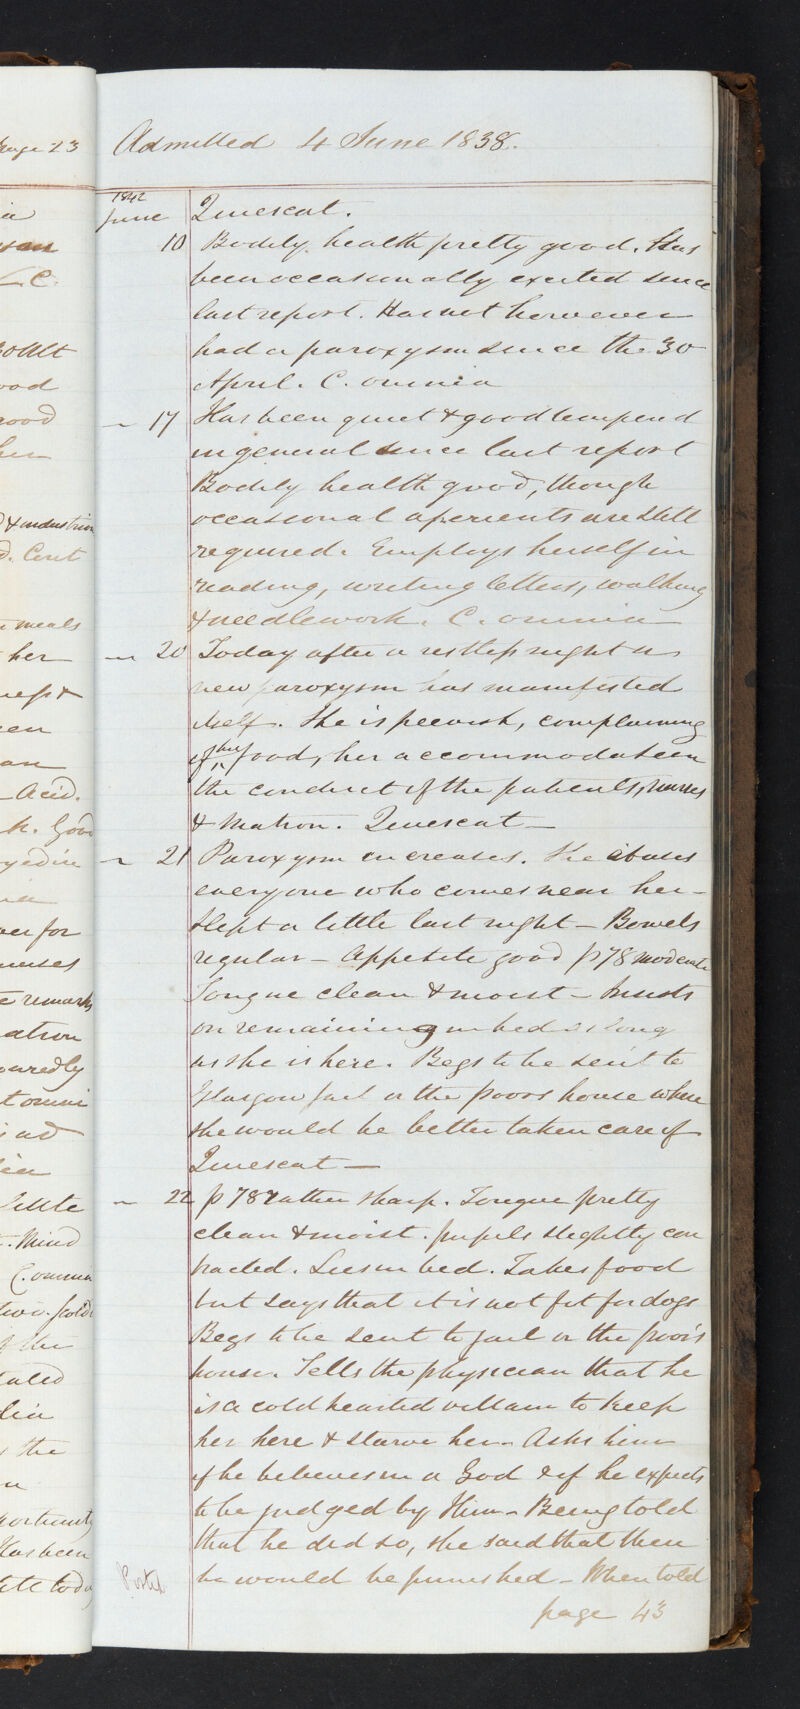 Admitted 4 June 1838.
1842
June Quiescat.
10 Bodily health pretty good. Has
been occasionally excited since
last report. Has not however
had a paroxysm since the 30
April. C. omnia
— 17 Has been quiet & good tempered
in general since last report
Bodily health good, though
occasional aperients are still
required. Employs herself in
reading, writing letters, walking
& needlework. C. omnia —
— 20 Today after a restless night a
new paroxysm has manifested
itself. She is peevish, complaining
of her food, her accommodation
the conduct of the patients, nurses
& Matron. Quiescat —
— 21 Paroxysm increases. She abuses
everyone who comes near her –
Slept a little last night – Bowels
regular – Appetite good p 78 moderate
Tongue clean & moist – Insists
on remaining in bed as long
as she is here. Begs to be sent to
Glasgow jail or the poors house where
she would be better taken care of
Quiescat —
— 22 p 78 rather sharp. Tongue pretty
clean & moist. pupils slightly con
tracted. Lies in bed. Takes food
but says that it is not fit for dogs
Begs to be sent to jail or the poor's
house. Tells the physician that he
is a cold hearted villain to keep
her here & starve her – Asks him
if he believes in a God & if he expects
to be judged by Him – Being told
that he did so, she said that then
he would be punished – When told
page 43